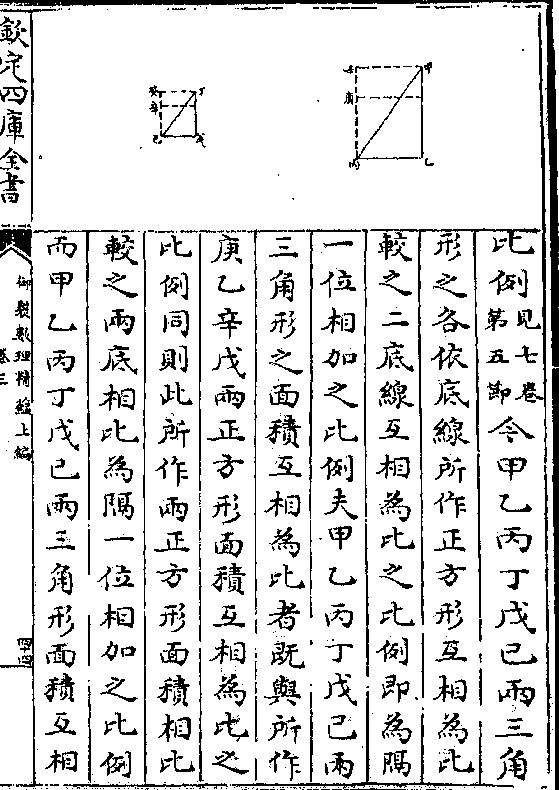 比例見七卷第五節今甲乙丙丁戊己兩三角
形之各依底線所作正方形互相為比
較之二底線互相為比之比例即為隔
一位相加之比例夫甲乙丙丁戊己兩
三角形之面積互相為比者既與所作
庚乙辛戊兩正方形面積互相為比之
比例同則此所作兩正方形面積相比
較之兩底相比為隔一位相加之比例
而甲乙丙丁戊己兩三角形面積互相
欽定四庫全書
御製數理精蘊上編
卷三
四四
壬 甲
庚
丙 乙
癸 丁
辛
己 戊